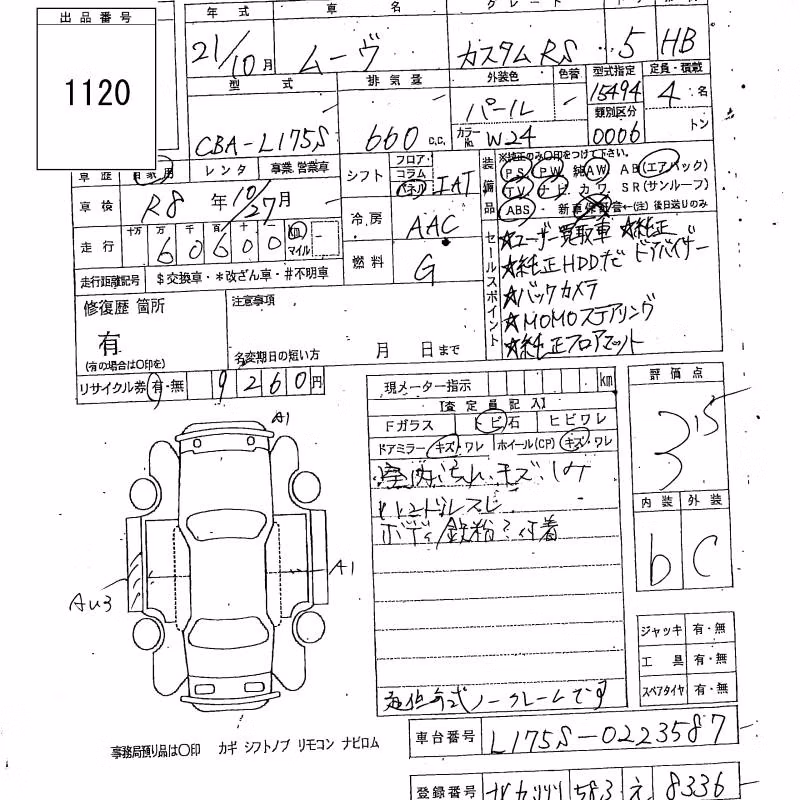 出品番号
1120
年式 車名 グレード
21/10月 ムーヴ カスタムRS 5 HB
型式 排気量 外装色 色替 型式指定 定員・積載
CBA-L175S 660 C.C. パール - 15494 4名
カラーNo. W24 類別区分 0006 トン
車歴 自家用 レンタ 事業・営業車
車検 R8年10/27月
走行 十万 万 千 百 十 一
60600 km マイル -
走行距離記号 $交換車・*改ざん車・#不明車
シフト フロア・コラム パネル IAT
冷房 AAC
燃料 G
装備品 ※純正のみ〇印をつけて下さい。
PS PW 純AW AB(エアバック)
TV ナビ カワ SR(サンルーフ)
ABS・新車保証書←(注)後日送りのみ
セールスポイント
☆ユーザー買取車 ☆純正
☆純正HDDナビ ドアバイザー
☆バックカメラ
☆MOMOステアリング
☆純正フロアマット
修復歴 箇所
有
(有の場合は〇印を)
注意事項
名変期日の短い方 月 日まで
リサイクル券 有・無 9260円
現メーター指示 km
【査定員記入】
Fガラス トビ石 ヒビワレ
ドアミラー キズ・ワレ ホイール(CP) キズ・ワレ
室内汚れ、キズ、シミ
ハンドルスレ
ボディ鉄粉?付着
ノークレームです
評価点
3.5
内装 外装
b C
A1
A1
AU3
ジャッキ 有・無
工具 有・無
スペアタイヤ 有・無
事務局預り品は〇印 カギ シフトノブ リモコン ナビロム
車台番号 L175S-0223587
登録番号 583 え 8336